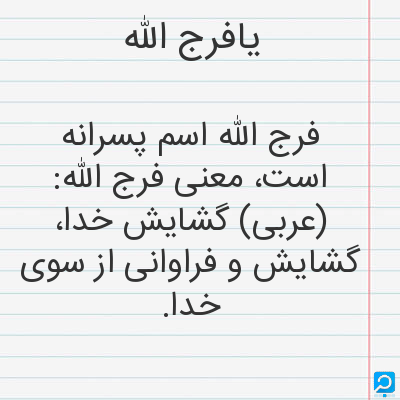 یافرج الله
فرج الله اسم پسرانه
است، معنی فرج الله:
(عربی) گشایش خدا،
گشایش و فراوانی از سوی
خدا.